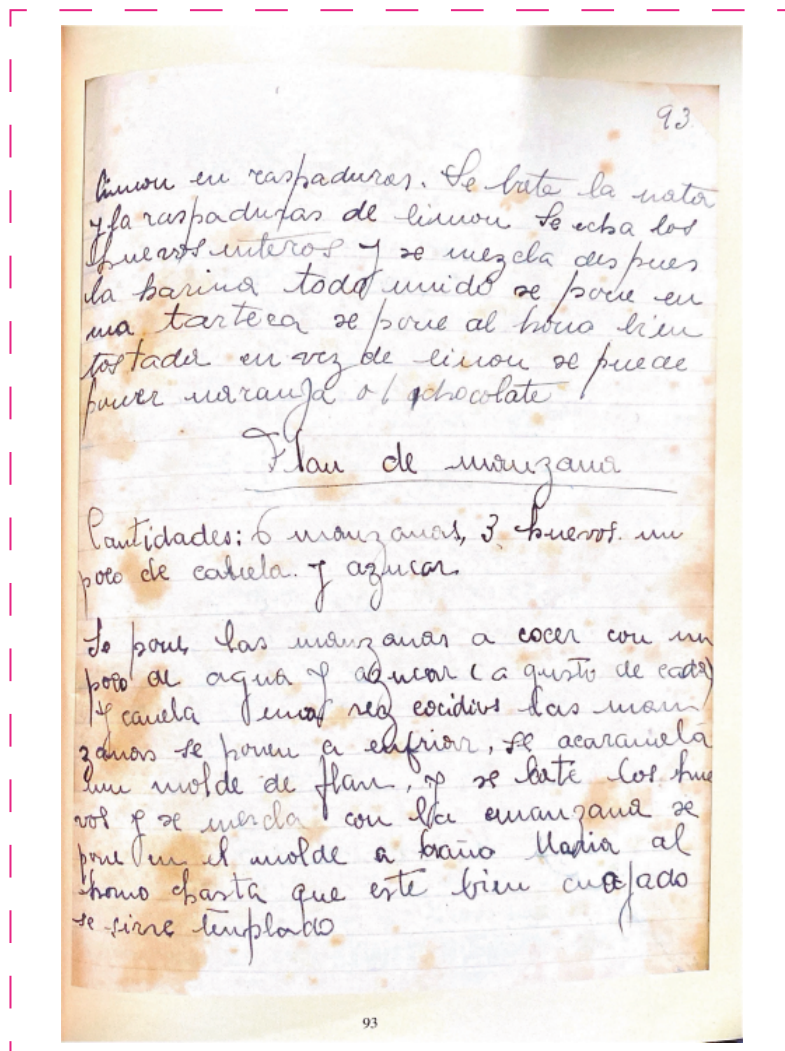 93
limon en raspaduras. Se bate la nata
y la raspaduras de limon Se echa los
huevos interos y se mezcla despues
la harina todo unido se pone en
una tartera se pone al horno bien
tostada en vez de limon se puede
poner naranja o chocolate
Flan de manzana
Cantidades: 6 manzanas, 3 huevos. un
poco de canela. y azucar.
Se pone las manzanas a cocer con un
poco de agua y azucar (a gusto de cada)
y canela una vez cocidas las man
zanas se ponen a enfriar, se acaramela
un molde de flan, y se bate los hue
vos y se mezcla con la manzana se
pone en el molde a baño Maria al
horno hasta que este bien cuajado
se sirve templado
93